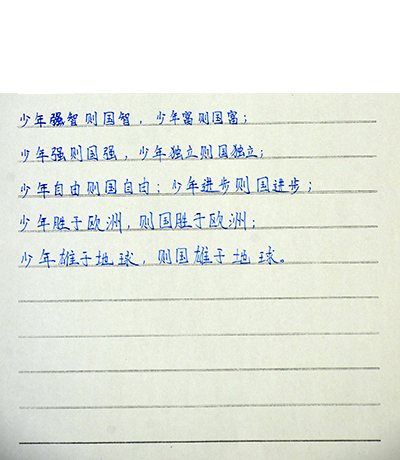 少年强智则国智，少年富则国富；
少年强则国强，少年独立则国独立；
少年自由则国自由；少年进步则国进步；
少年胜于欧洲，则国胜于欧洲；
少年雄于地球，则国雄于地球。